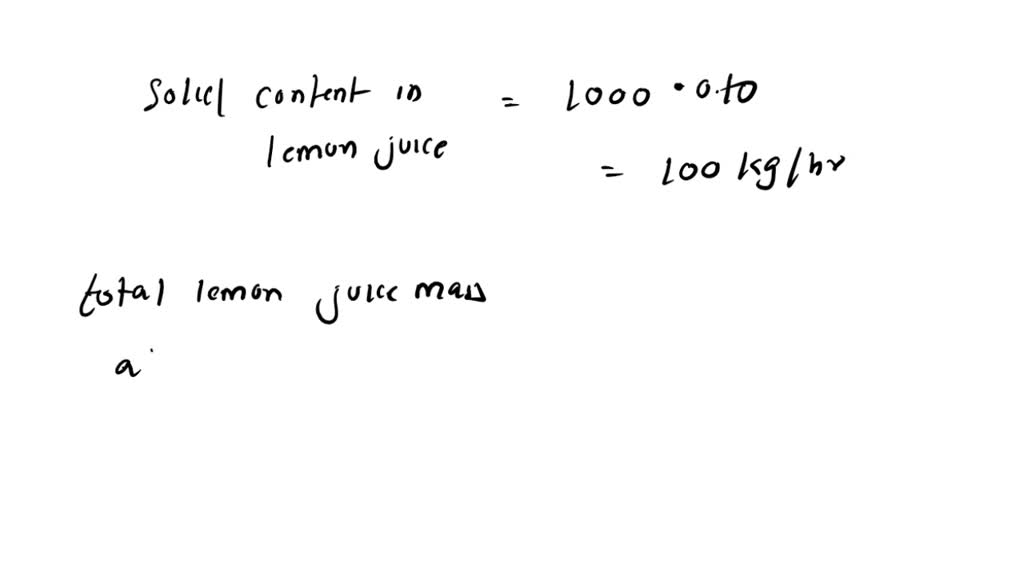 Solid content in = 1000 • 0.10
lemon juice
= 100 kg/hr
total lemon juice mass
a